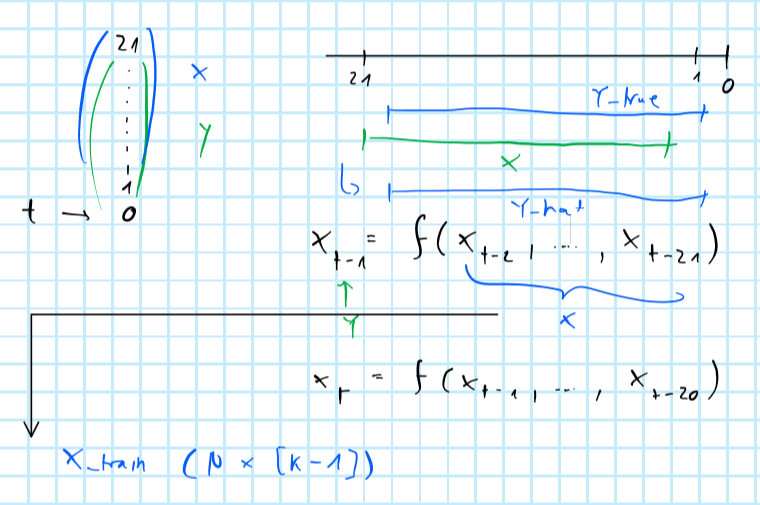 21
X
Y
1
t → 0
21 1 0
Y_true
X
Y_hat
x_{t-1} = f(x_{t-2}, ..., x_{t-21})
Y
X
x_t = f(x_{t-1}, ..., x_{t-20})
X_train (N x [K-1])